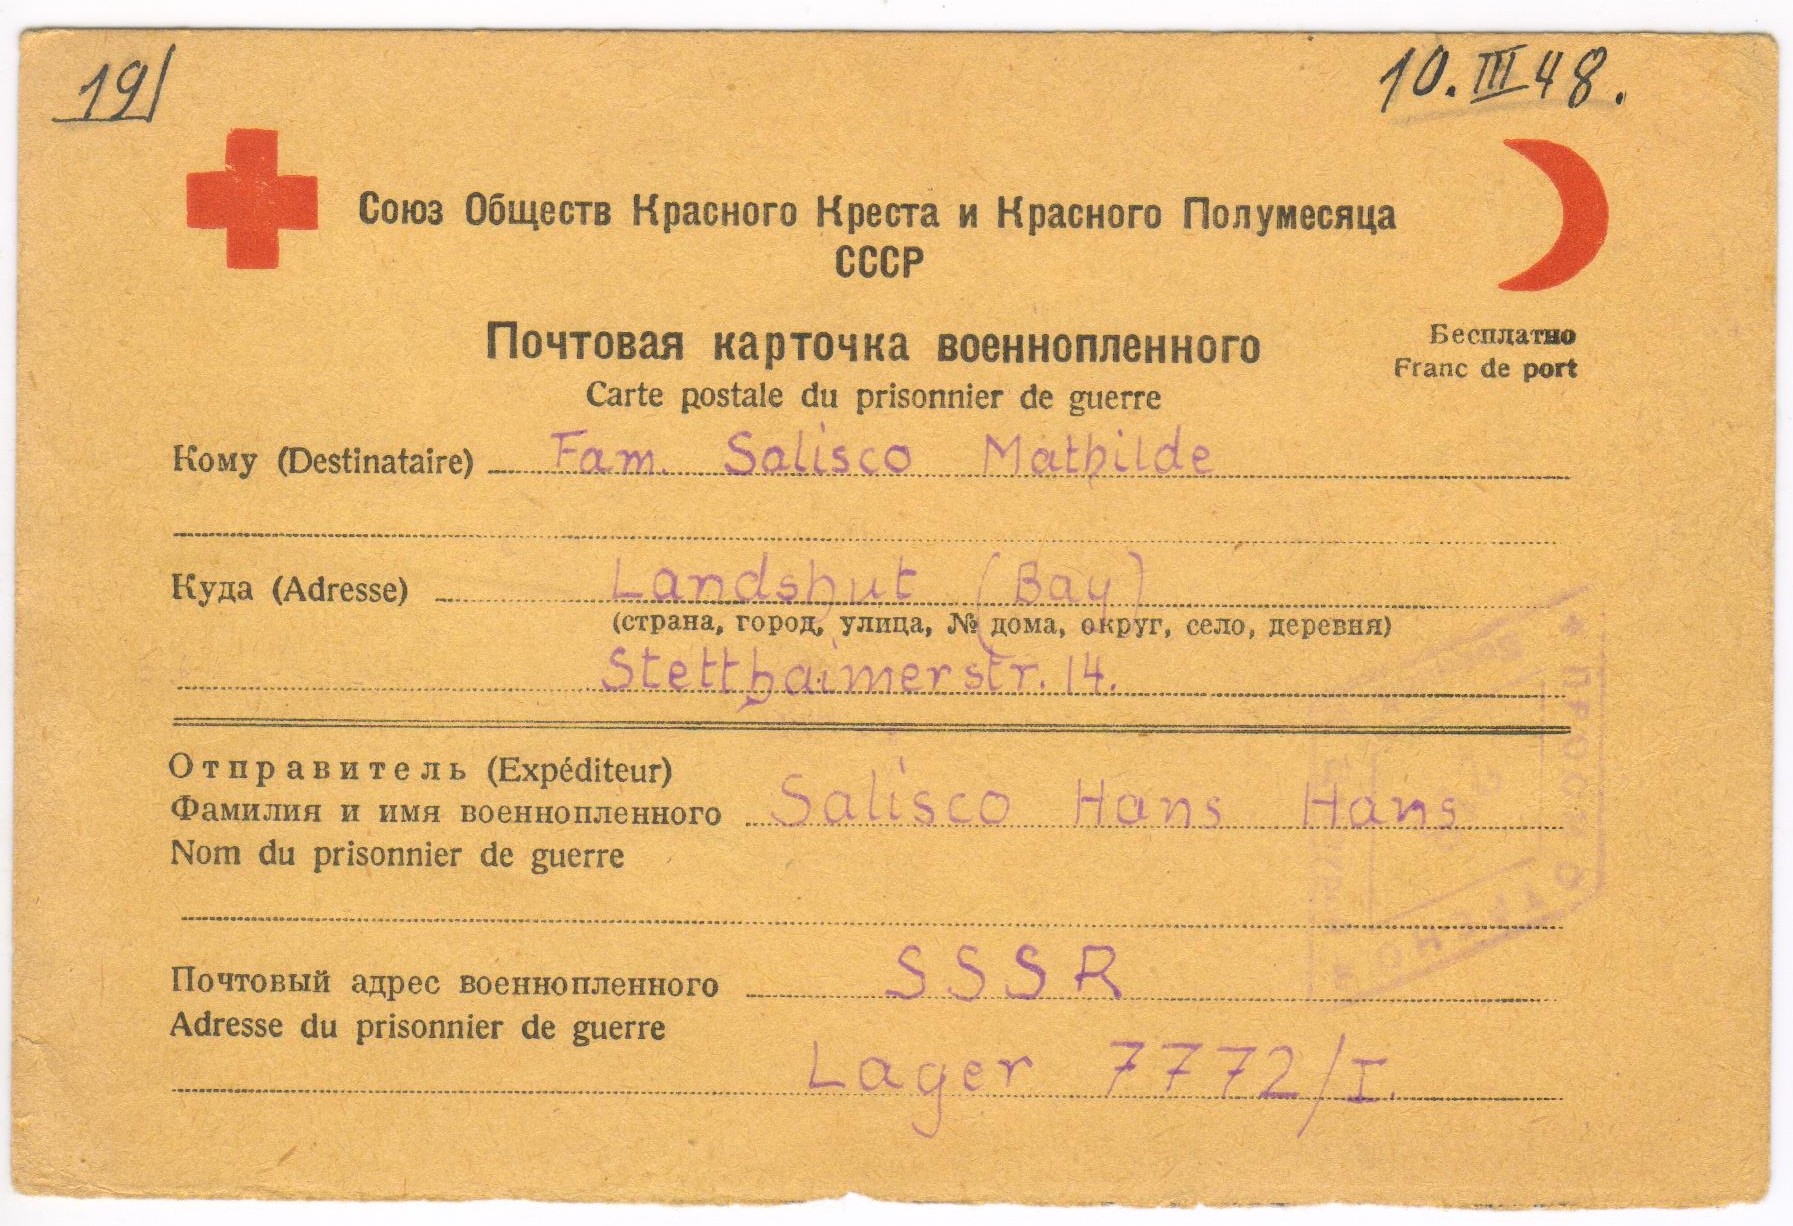 19/
10. III 48.
Союз Обществ Красного Креста и Красного Полумесяца
СССР
Почтовая карточка военнопленного
Бесплатно
Franc de port
Carte postale du prisonnier de guerre
Кому (Destinataire) Fam. Salisco Mathilde
Куда (Adresse) Landshut (Bay)
(страна, город, улица, № дома, округ, село, деревня)
Stetthaimerstr. 14.
Отправитель (Expéditeur)
Фамилия и имя военнопленного Salisco Hans Hans
Nom du prisonnier de guerre
Почтовый адрес военнопленного SSSR
Adresse du prisonnier de guerre
Lager 7772/I.